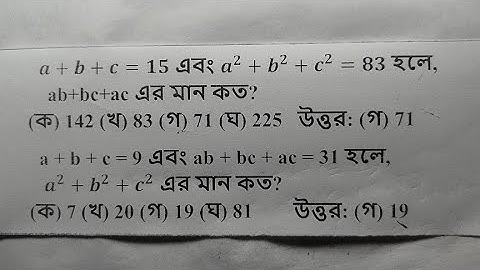 a + b + c = 15 এবং a² + b² + c² = 83 হলে,
ab+bc+ac এর মান কত?
(ক) 142 (খ) 83 (গ) 71 (ঘ) 225 উত্তর: (গ) 71
a + b + c = 9 এবং ab + bc + ac = 31 হলে,
a² + b² + c² এর মান কত?
(ক) 7 (খ) 20 (গ) 19 (ঘ) 81 উত্তর: (গ) 19